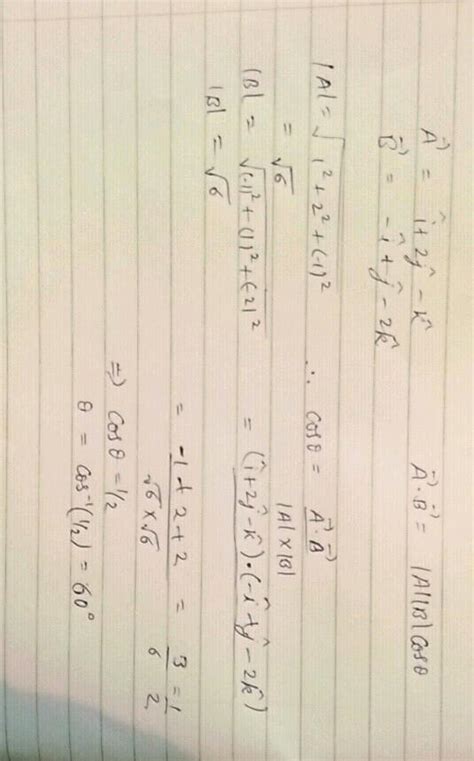 A⃗ = î + 2ĵ - k̂
B⃗ = -î + ĵ - 2k̂
A⃗ · B⃗ = |A||B| cosθ
|A| = √1² + 2² + (-1)²
= √6
|B| = √(-1)² + (1)² + (-2)²
|B| = √6
∴ cosθ = A⃗ · B⃗ / |A| × |B|
= (î + 2ĵ - k̂) · (-î + ĵ - 2k̂)
= -1 + 2 + 2 / √6 × √6 = 3/6 = 1/2
⇒ cosθ = 1/2
θ = cos⁻¹(1/2) = 60°